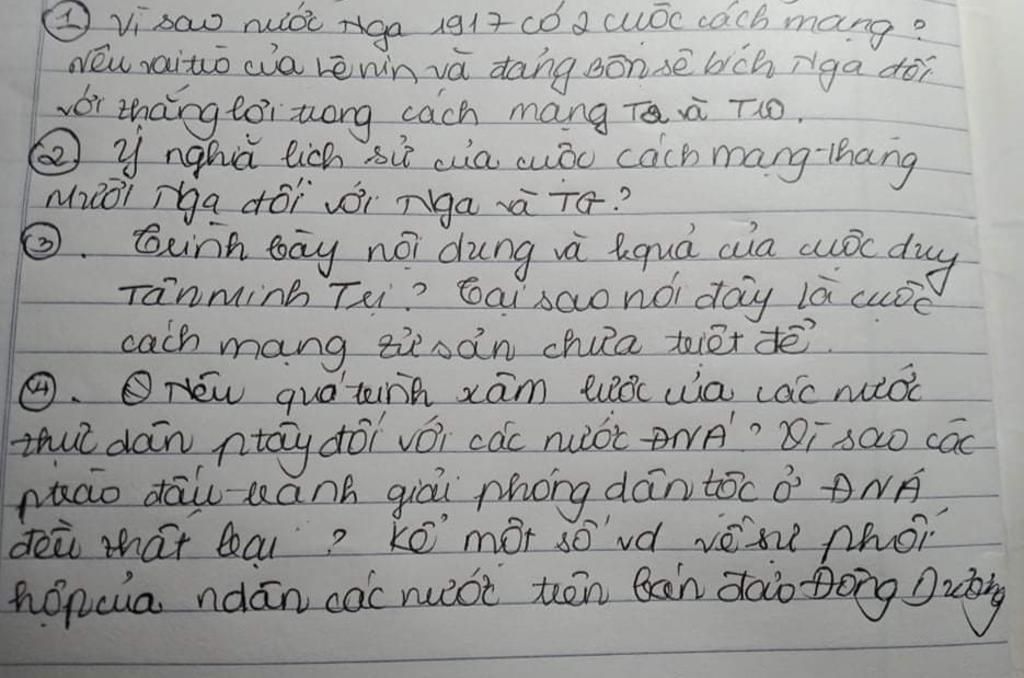 ① Vì sao nước Nga 1917 có 2 cuộc cách mạng?
Nêu vai trò của Lênin và đảng Bônsêvích Nga đối
với thắng lợi trong cách mạng T2 và T10.
② Ý nghĩa lịch sử của cuộc cách mạng tháng
Mười Nga đối với Nga và TG?
③. Trình bày nội dung và kquả của cuộc duy
Tân Minh Trị? Tại sao nói đây là cuộc
cách mạng tư sản chưa triệt để.
④. Nêu quá trình xâm lược của các nước
thực dân ptây đối với các nước ĐNÁ? Vì sao các
ptrào đấu tranh giải phóng dân tộc ở ĐNÁ
đều thất bại? Kể một số vd về sự phối
hợp của ndân các nước trên bán đảo Đông Dương